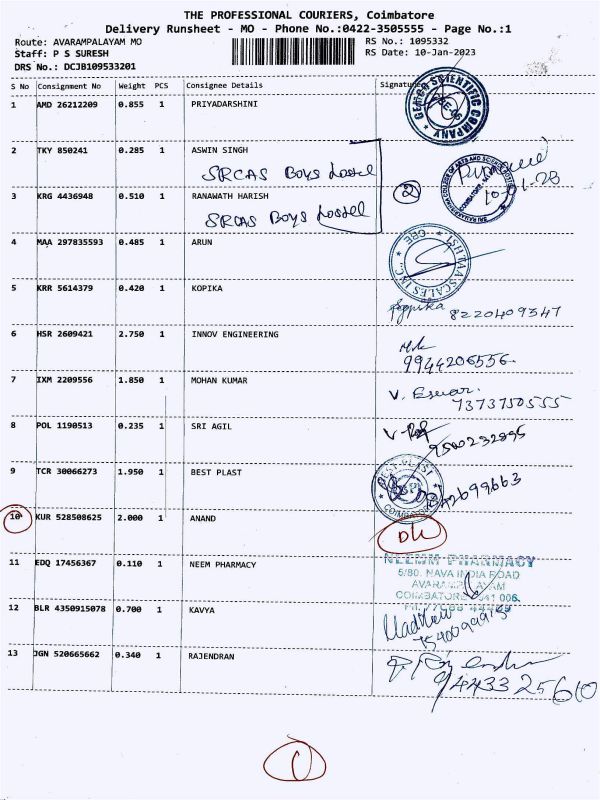 THE PROFESSIONAL COURIERS, Coimbatore
Delivery Runsheet - MO - Phone No.:0422-3505555 - Page No.:1
Route: AVARAMPALAYAM MO
RS No.: 1095332
Staff: P S SURESH
RS Date: 10-Jan-2023
DRS No.: DCJB109533201
S No Consignment No Weight PCS Consignee Details Signature
1 AMD 26212209 0.855 1 PRIYADARSHINI
SCIENTIFIC COMPANY
2 TKY 850241 0.285 1 ASWIN SINGH
SRCAS Boys Hostel
10-01-23
3 KRG 4436948 0.510 1 RANAWATH HARISH
SRCAS Boys Hostel
2
4 MAA 297835593 0.485 1 ARUN
SCALES INC
CBE
5 KRR 5614379 0.420 1 KOPIKA
Kopika 8220409347
6 HSR 2609421 2.750 1 INNOV ENGINEERING
9944206556
7 IXM 2209556 1.850 1 MOHAN KUMAR
V. Eswar.
7373750555
8 POL 1190513 0.235 1 SRI AGIL
9500232895
9 TCR 30066273 1.950 1 BEST PLAST
BEST PLAST
10 KUR 528508625 2.000 1 ANAND
DL
11 EDQ 17456367 0.110 1 NEEM PHARMACY
NEEMM PHARMACY
5/80. NAVA INDIA ROAD
AVARAMPALAYAM
COIMBATORE - 641 006.
12 BLR 4350915078 0.700 1 KAVYA
13 JGN 520665662 0.340 1 RAJENDRAN
9443325610
1